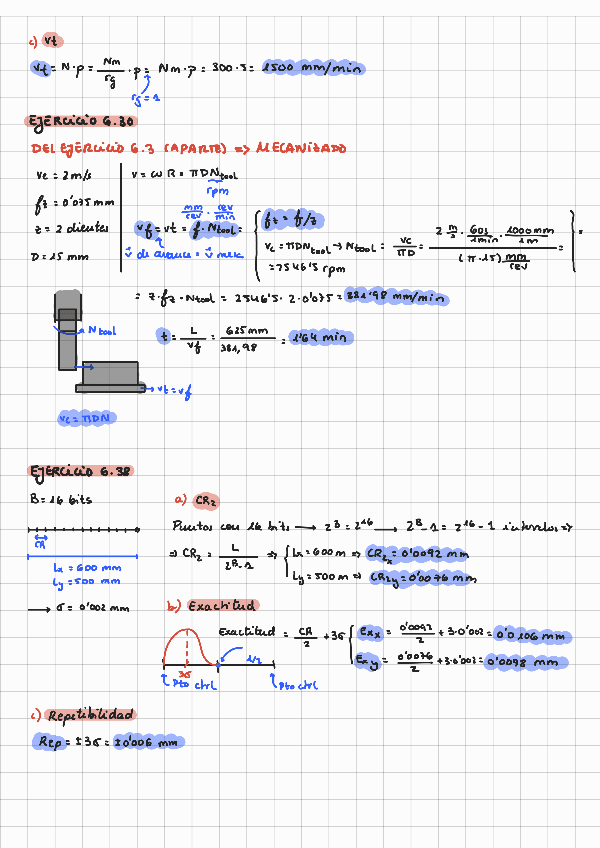 c) vt
vt = N·p = Nm/rg · p = Nm·p = 300·5 = 1500 mm/min
rg = 1
EJERCICIO 6.30
DEL EJERCICIO 6.3 (APARTE) => MECANIZADO
vc = 2 m/s
fz = 0'075 mm
z = 2 dientes
D = 15 mm
v = ω R = πDNtool
rpm
mm/rev · rev/min
vf = vt = f·Ntool =
v̂ de avance = v̂ mesa
fz = f/z
vc = πDNtool → Ntool = vc/πD = 2 m/s · 60s/1min · 1000mm/1m / (π·15) mm/rev =
= 2546'5 rpm
= z·fz·Ntool = 2546'5 · 2 · 0'075 = 381'98 mm/min
t = L/vf = 625mm/381,98 = 1'64 min
Ntool
vt = vf
vc = πDN
EJERCICIO 6.38
B = 16 bits
CR
Lx = 600 mm
Ly = 500 mm
→ σ = 0'002 mm
a) CR2
Puntos con 16 bits → 2^B = 2^16 → 2^B - 1 = 2^16 - 1 intervalos =>
=> CR2 = L/2^B-1 => { Lx = 600 m => CR2x = 0'0092 mm
Ly = 500 m => CR2y = 0'0076 mm
b) Exactitud
Exactitud = CR/2 + 3σ { Exx = 0'0092/2 + 3·0'002 = 0'0106 mm
Exy = 0'0076/2 + 3·0'002 = 0'0098 mm
3σ
Pto ctrl
Pto ctrl
c) Repetibilidad
Rep = ±3σ = ±0'006 mm